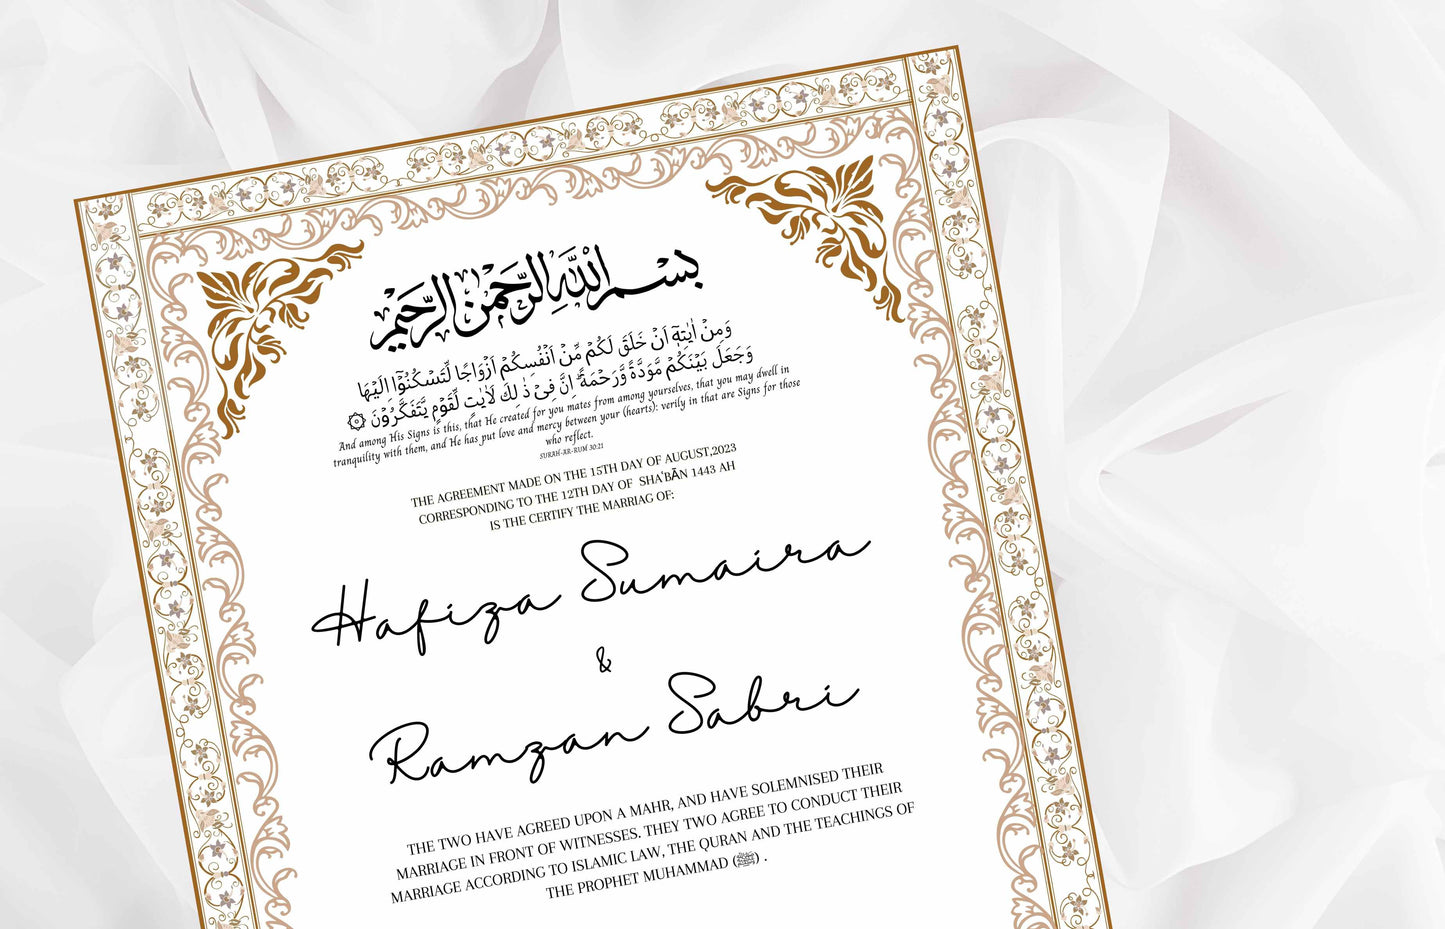 بِسْمِ اللَّهِ الرَّحْمَنِ الرَّحِيمِ
وَمِنْ اٰيٰتِهٖٓ اَنْ خَلَقَ لَكُمْ مِّنْ اَنْفُسِكُمْ اَزْوَاجًا لِّتَسْكُنُوْٓا اِلَيْهَا
وَجَعَلَ بَيْنَكُمْ مَّوَدَّةً وَّرَحْمَةً ۗ اِنَّ فِيْ ذٰلِكَ لَاٰيٰتٍ لِّقَوْمٍ يَّتَفَكَّرُوْنَ
And among His Signs is this, that He created for you mates from among yourselves, that you may dwell in
tranquility with them, and He has put love and mercy between your (hearts): verily in that are Signs for those
who reflect.
SURAH-AR-RUM 30:21
THE AGREEMENT MADE ON THE 15TH DAY OF AUGUST,2023
CORRESPONDING TO THE 12TH DAY OF SHA'BĀN 1443 AH
IS THE CERTIFY THE MARRIAG OF:
Hafiza Sumaira
&
Ramzan Sabri
THE TWO HAVE AGREED UPON A MAHR, AND HAVE SOLEMNISED THEIR
MARRIAGE IN FRONT OF WITNESSES. THEY TWO AGREE TO CONDUCT THEIR
MARRIAGE ACCORDING TO ISLAMIC LAW, THE QURAN AND THE TEACHINGS OF
THE PROPHET MUHAMMAD (ﷺ) .